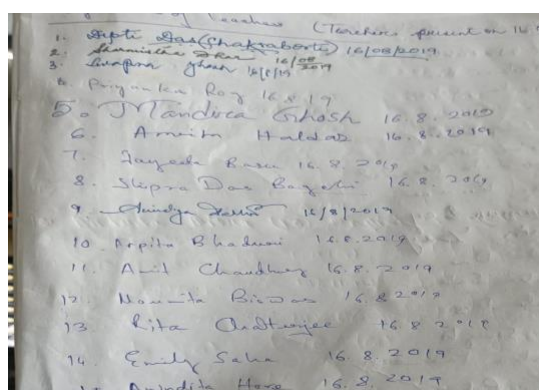 of Teachers (Teachers present on 16
1. Dipti Das (Chakraborty) 16/08/2019
2. Sharmistha Dhar 16/08/2019
3. Swapna Ghosh 16/8/19
Priyanka Roy 16.8.19
5. Mandira Ghosh 16.8.2019
6. Amrita Haldar 16.8.2019
7. Jayeeta Basu 16.8.2019
8. Shipra Das Bagchi 16.8.2019
9. Anindya 16/8/2019
10. Arpita Bhaduri 16.8.2019
11. Amit Chaudhury 16.8.2019
12. Moumita Biswas 16.8.2019
13 Rita Chatterjee 16.8.2019
14. Emily Saha 16.8.2019
Anindita Hore 16.8.2019